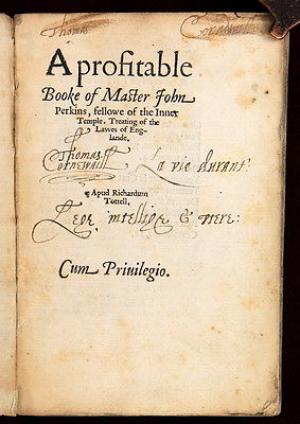 Thomas Cornwall
A profitable
Booke of Master John
Perkins, fellowe of the Inner
Temple. Treating of the
Lawes of Eng-
lande.
Thomas
Cornewall
La vie durant
Apud Richardum
Tottell.
Lege intellige &
Cum Priuilegio.